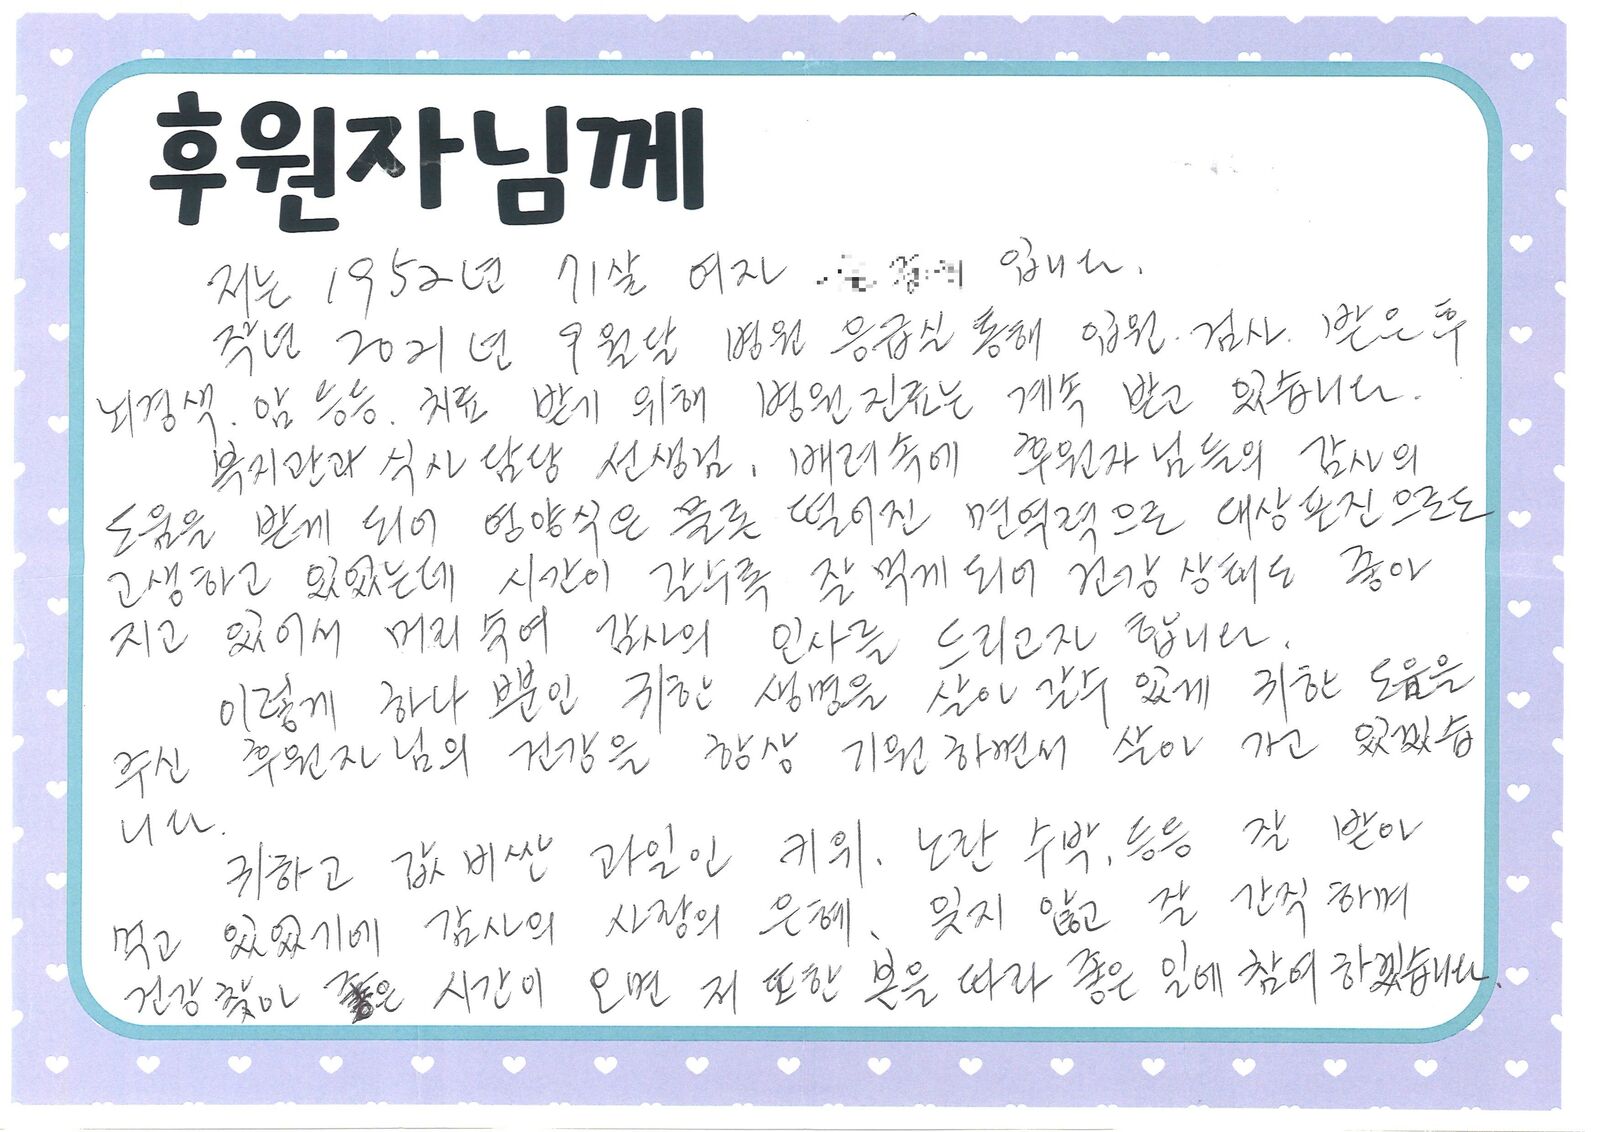 후원자님께
저는 1952년 71살 여자 입니다.
작년 2021년 9월달 병원 응급실 통해 입원. 검사. 받은 후
뇌경색. 암 등등. 치료 받기 위해 병원진료는 계속 받고 있습니다.
복지관과 식사 담당 선생님, 배려속에 후원자님들의 감사의
도움을 받게 되어 영양식은 물론 떨어진 면역력으로 대상포진으로도
고생하고 있었는데 시간이 갈수록 잘 먹게되어 건강 상태도 좋아
지고 있어서 머리 숙여 감사의 인사를 드리고자 합니다.
이렇게 하나 뿐인 귀한 생명을 살아 갈수 있게 귀한 도움을
주신 후원자님의 건강을 항상 기원하면서 살아 가고 있겠습
니다.
귀하고 값비싼 과일인 키위. 노란 수박, 등등 잘 받아
먹고 있었기에 감사의 사랑의 은혜, 잊지 않고 잘 간직하며
건강찾아 좋은 시간이 오면 저 또한 본을 따라 좋은 일에 참여하겠습니다.